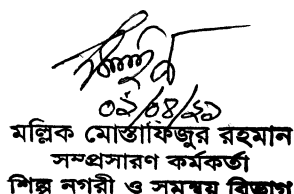 ০২/০৪/২১
মল্লিক মোস্তাফিজুর রহমান
সম্প্রসারণ কর্মকর্তা
শিল্প নগরী ও সমন্বয় বিভাগ